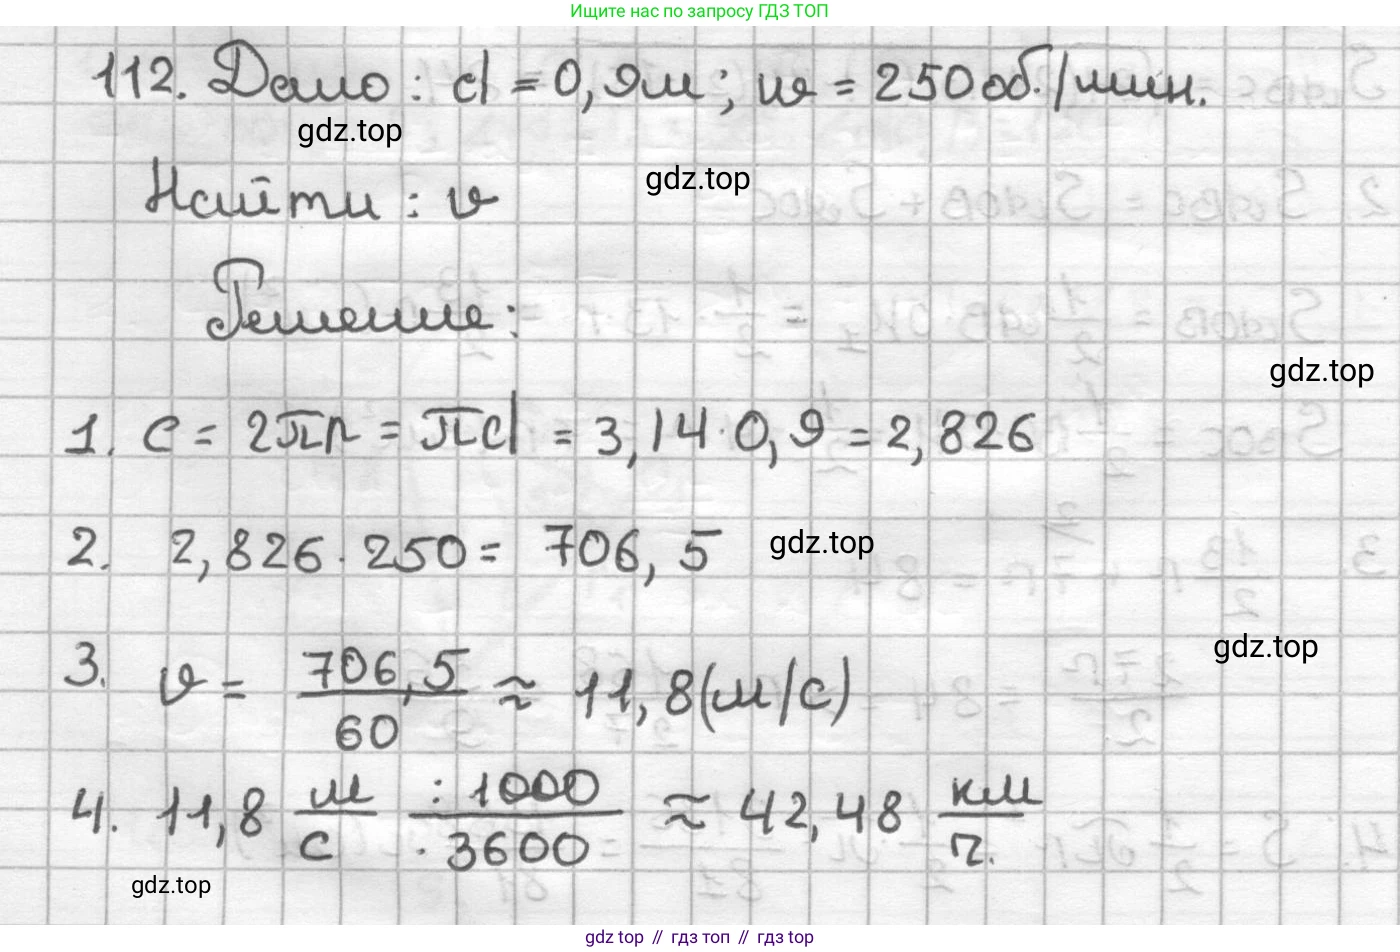 Ищите нас по запросу ГДЗ ТОП
112. Дано : d = 0,9м ; w = 250 об./мин.
gdz.top
Найти : v
gdz.top
Решение:
gdz.top
1. C = 2πr = πd = 3,14 · 0,9 = 2,826
2. 2,826 · 250 = 706,5
gdz.top
3. v = 706,5/60 ≈ 11,8(м/с)
gdz.top
4. 11,8 м/с :1000/·3600 ≈ 42,48 км/г.
gdz.top
gdz top // гдз топ // gdz top